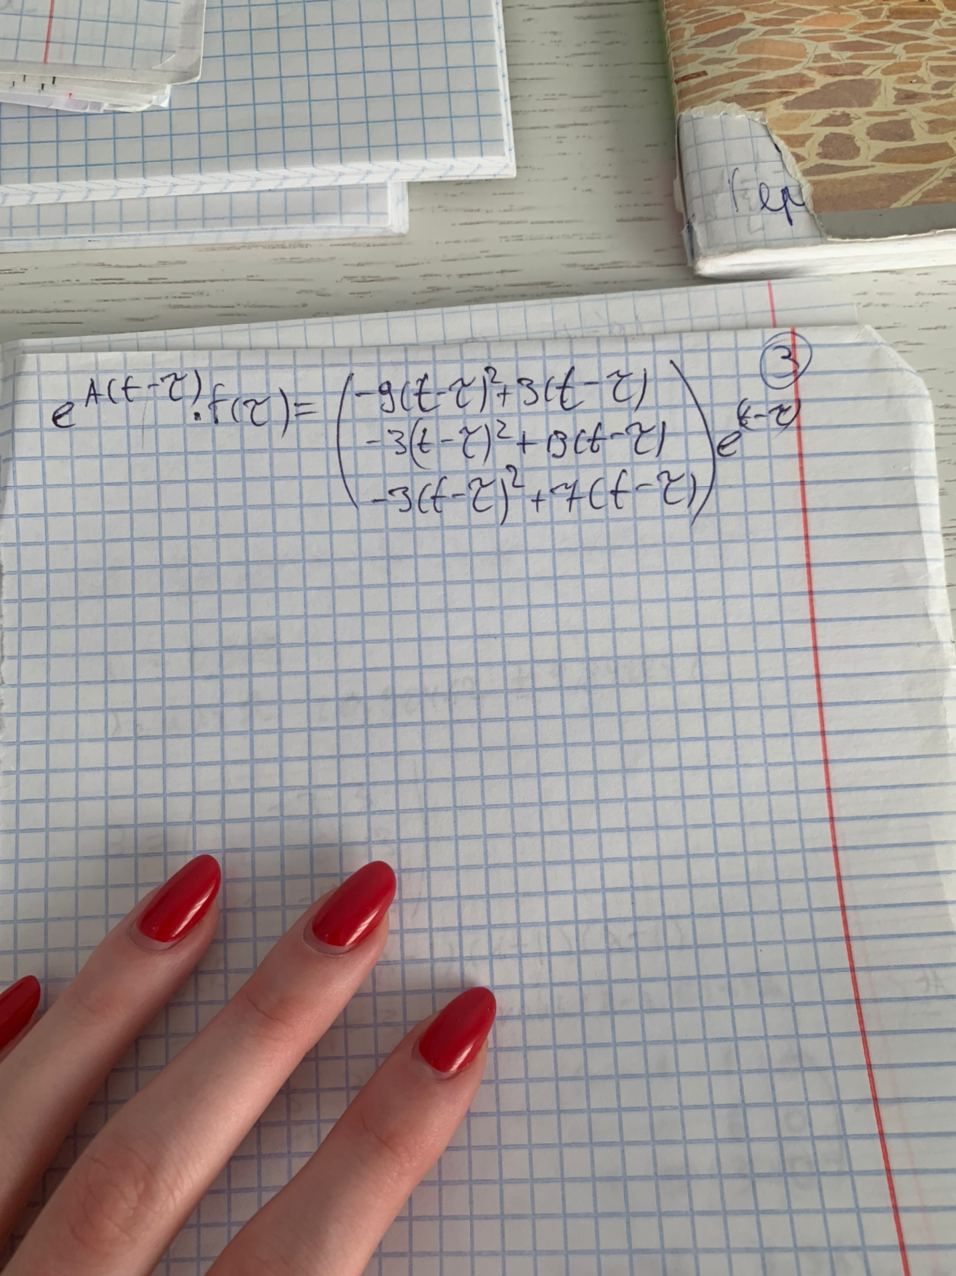 Тер
③
e^{A(t-τ)}·f(τ)= (-9(t-τ)²+3(t-τ)
-3(t-τ)²+9(t-τ)
-3(t-τ)²+7(t-τ)) e^{(t-τ)}